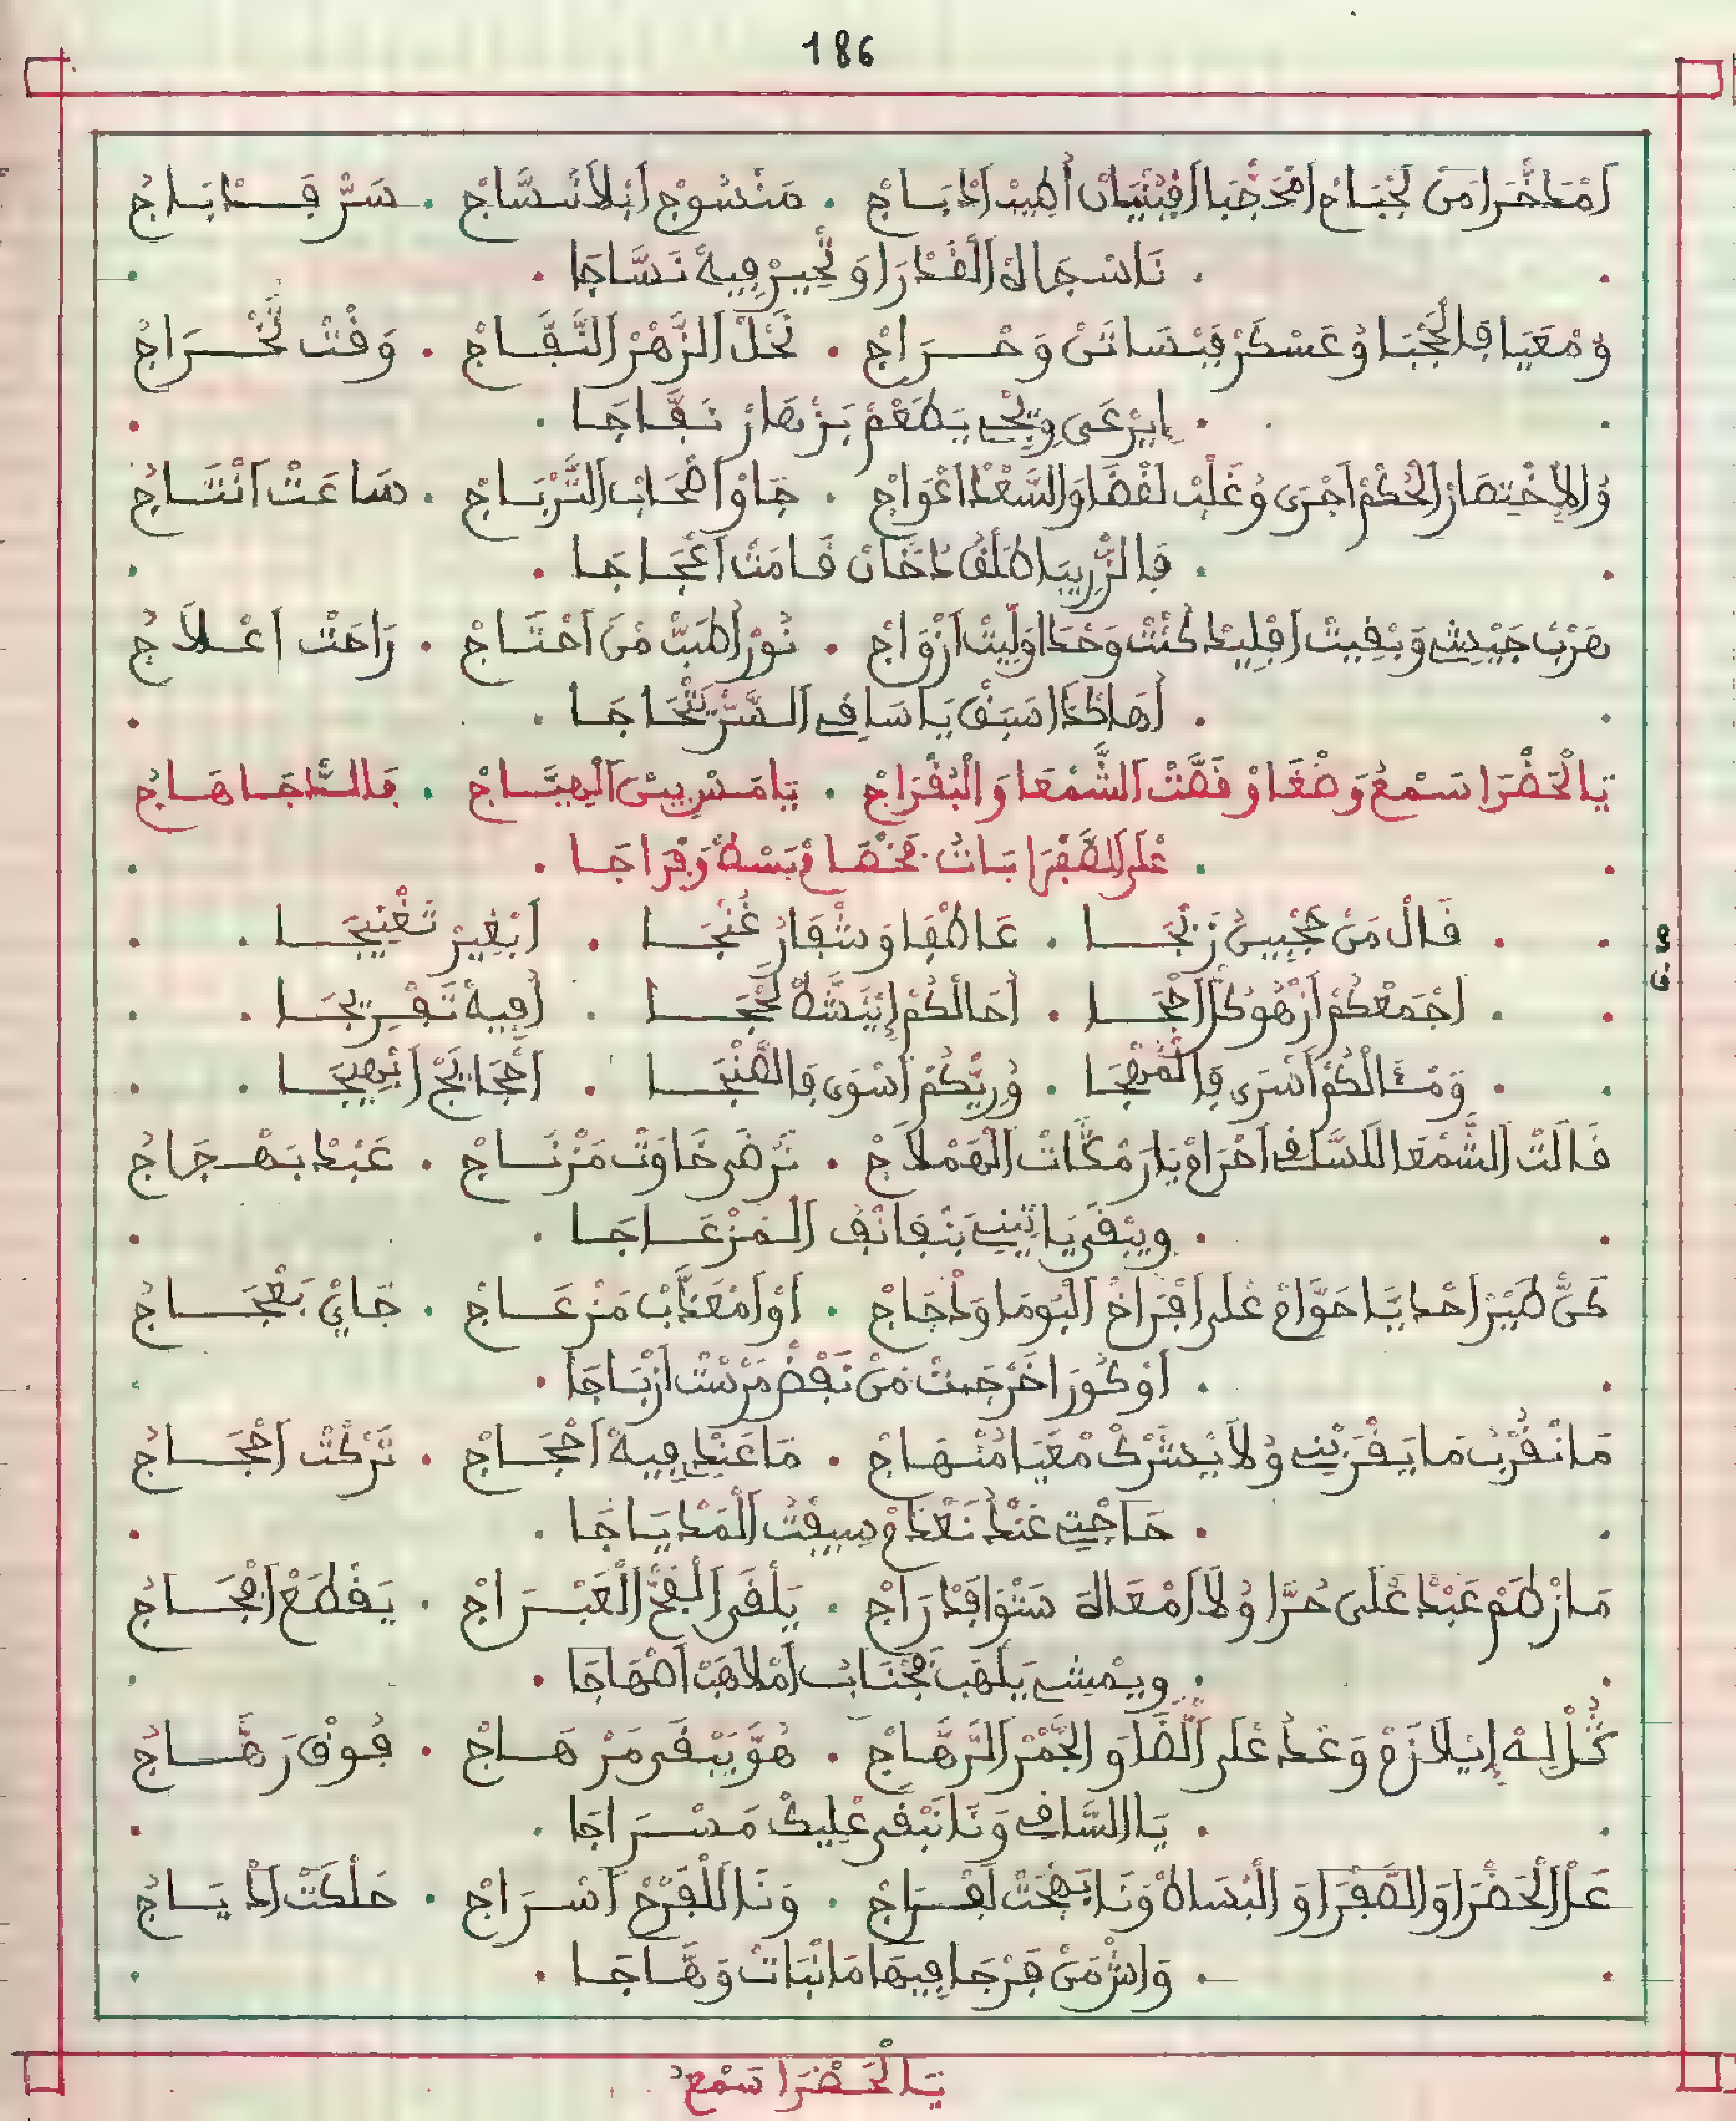 186
اَمْدَخَّرَا مَنْ لَجْبَاحْ اَمْحَجْبَا اَفِبْنْيَانْ اَطِيبْ اَدْبَاجْ . مَنْسُوجْ اَبْلَا نَسَّاجْ . سَرّْ فَدْبَاجُ
. نَاسْجَالُهْ اَلْقُدْرَا وَتْحِيرْ فِيهْ نَسَّاجَا .
وُمْعَيَا فِالْحُجْبَا وُعَسْكَرْ فِبْسَاتَنْ وَحْرَاجْ . نَحْلْ اَلزَّهْرْ اَلنَّفَّاجْ . وَقْتْ تُّخْرَاجُ
. اِيرْعَى وِيجِي يَطْعَمْ بَزْهَارْ نَفَّاجَا .
وُلِاخْتِصَارْ اَلْحُكْمْ اَجْرَى وُغَلْبْ لَقْضَا وَالسَّعْدْ اَعْوَاجْ . جَاوْ اَصْحَابْ اَلتَّرْبَاجْ . سَاعَتْ اَنْتَاجُ
. فَالزّْرِيبَا طَلْقُ دُخَّانْ قَامَتْ اَعْجَاجَا .
هَرْبْ جَيْشِي وَبْقِيتْ اَفْلِيدْ كُنْتْ وَحْدَا وَلِّيتْ اَزْوَاجْ . نُورْ اَطَبّْ مْنْ اَحْتَاجْ . رَاحَتْ اَعْلَاجُ
. اَهَاكْذَا سَبَقْ يَا سَاقِي اَلسَّرّْ تَنْحَاجَا .
يَا لْحَضْرَا سَمْعُ وَضْغَاوْ قَصَّتْ اَلشَّمْعَا وَالْبُفْرَاجْ . يَا مَسْرِيينْ اَلْهِيَّاجْ . فَالدَّاجَا هَاجُ
. عْلَى الصَّفْرَا بَاتُ فَخْصَامْ بَسْطْ وَفْرَاجَا .
. قَالْ مَنْ حُجْبِينْ زَنْجَا . عَاطْفَا وَشْفَارْ غُنْجَا . اَبْغِيرْ تَغْنِيجَا .
. اَجْمَعْكُمْ اَزْهُو كُلّْ اَحْجَا . اَحَالْكُمْ اِيْنَشَّطْ لَحْجَا . اُفِيهْ تَفْرِيجَا .
. وَمْثَالْكُمْ اَسْرَى فَالْمُهْجَا . وُرِيّْكُمْ اَسْوَى فَالصَّنْجَا . اَحْجَايَجْ اَبْهِيجَا .
قَالَتْ اَلشَّمْعَا لَلسَّاقِي اَحْرَامْ يَا رَمْكَاتْ اَلْهَمْلَاجْ . تَرْضَى خَاوَتْ مَزْنَاجْ . عَبْدْ بَهْرَجَاجُ
. وِيبْقَى يَاتِينِي بَنْفَاتْفُ اَلْمَزْعَاجَا .
كَنّْ طِيرْ اَحْدَيَّا حَوَّامْ عْلَى اَفْرَاخْ اَلْبُومَا وَدْجَاجْ . اَوْ اَمْعَذَّبْ مَزْعَاجْ . جَايْ بَعْجَاجُ
. اَوْ كُورَا خَرْجَتْ مَنْ نَفْضْ مَرْسْتْ اَرْبَاجَا .
مَا نْقُرْبُ مَا يَقْرَبْنِي وُلَا يْشَرْكْ مْعَيَا مُنْهَاجْ . مَا عَنْدِي فِيهْ اَحْجَاجْ . تَرْكَتْ اَحْجَاجُ
. حَاجْتِي عَنْدُ نَعْدَامْ سِيقْتْ اَلْمَدْيَاجَا .
مَا زْطَمْ عَبْدْ عْلَى حُرَّا وُلَا اَمْعَالَهْ سَتْوَا فَدْرَاجْ . يَلْقَى اَلْفَجّْ اَلْغَبْرَاجْ . يَقْطَعْ اَفْجَاجُ
. وِيمْشِي يَلْهَبْ فَجْنَابْ اَمْلَاهَبْ اَصْهَاجَا .
كُلّْ لِيلَهْ اِيْلَازَمْ وَعْدْ عْلَى اَلْضَّا وَالْجَمْرْ اَلرَّهَّاجْ . هُوَّ يَبْقَى مَرْهَاجْ . فُوقْ رَهَّاجُ
. يَا السَّاقِي وَنَا نَبْقَى عْلِيكْ مَسْرَاجَا .
عَلْ اَلْحَضْرَا وَالصَّفْرَا وَالْبُسَاطْ وَنَا بَهْجَتْ لَفْرَاجْ . وَنَا لَلْفَرْحْ اَسْرَاجْ . حَلْكَتْ اَدْيَاجُ
. وَاشْ مَنْ فَرْجَا فِيهَا مَا نْبَاتْ وَهَّاجَا .
يَا لْحَضْرَا سَمْعُ